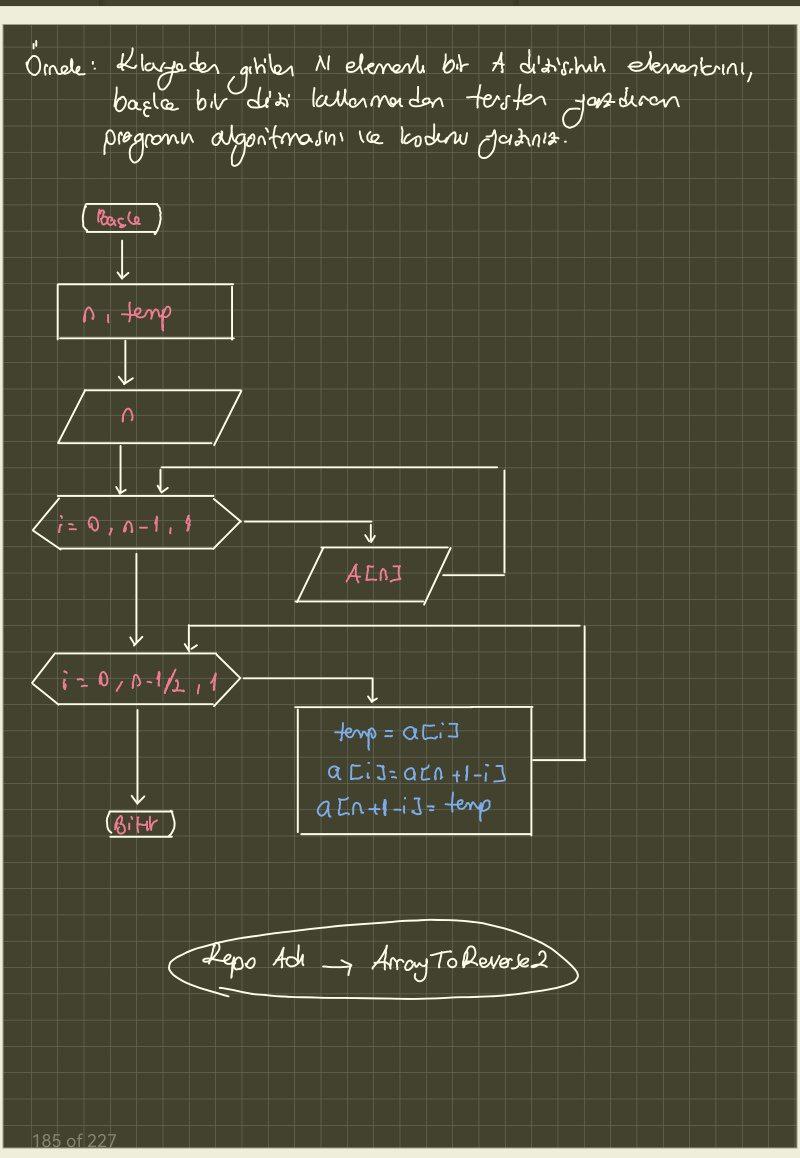 Örnek: Klavyeden girilen N elemanlı bir A dizisinin elemanlarını,
başka bir dizi kullanmadan tersten yazdıran
programın algoritmasını ve kodunu yazınız.
Başla
n, temp
n
i = 0, n-1, 1
A[n]
i = 0, n-1/2, 1
temp = a[i]
a[i]=a[n+1-i]
a[n+1-i]= temp
Bitir
Repo Adı → ArrayToReverse2
185 of 227